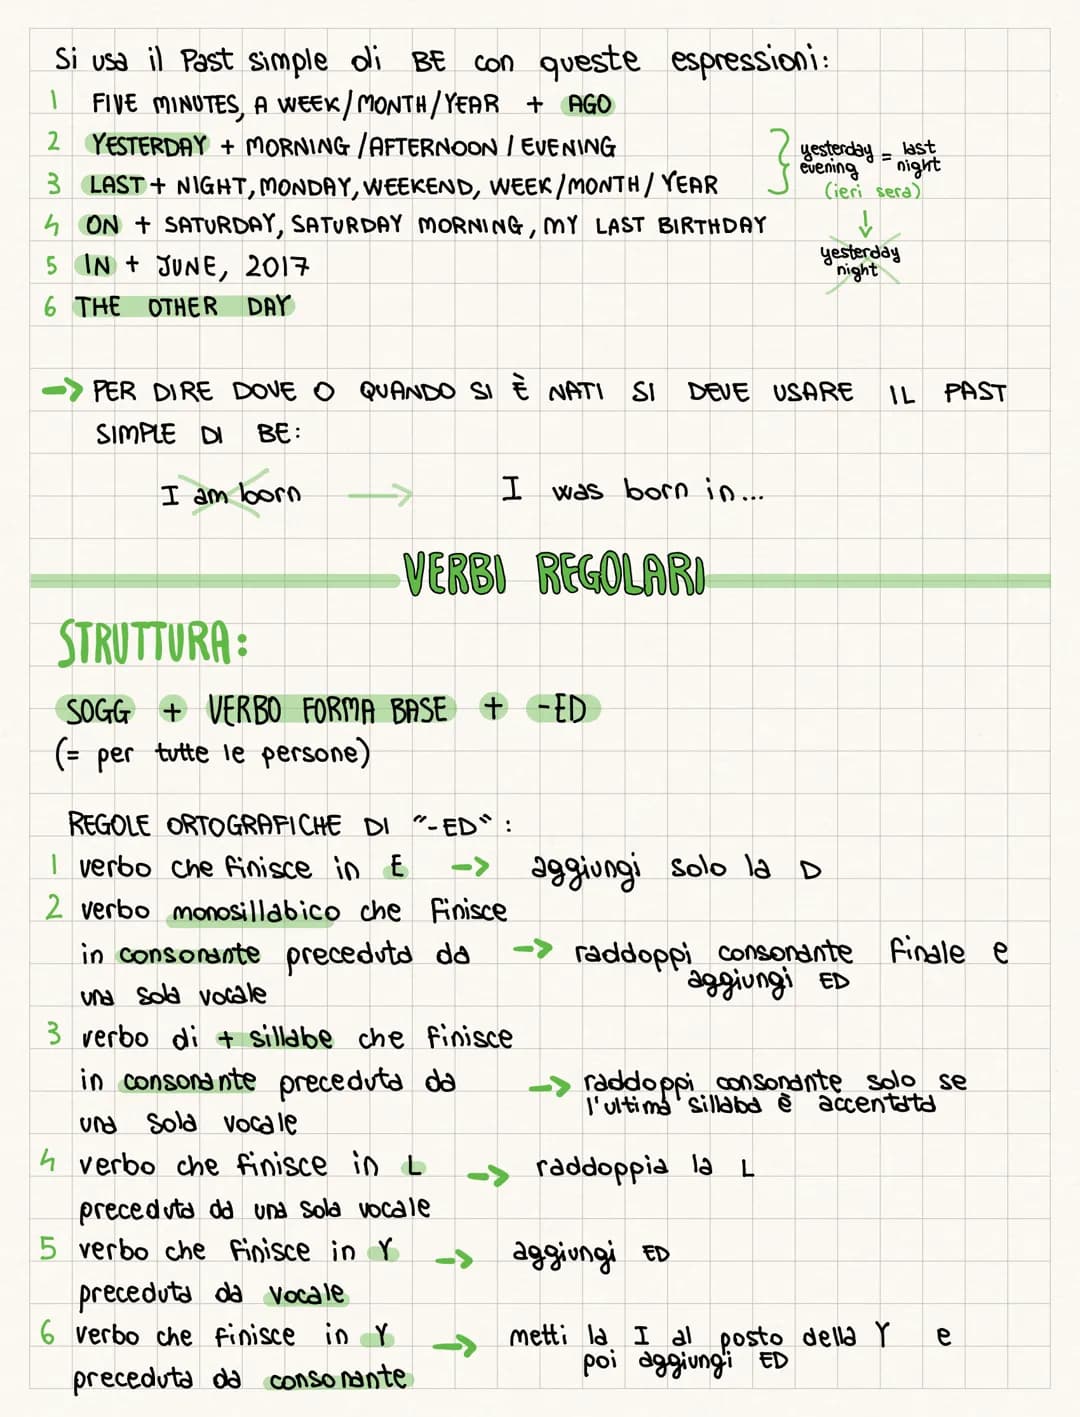 Si usa il Past simple di BE con queste espressioni:
1 FIVE MINUTES, A WEEK/MONTH/YEAR + AGO
2 YESTERDAY + MORNING/AFTERNOON/EVENING
3 LAST + NIGHT, MONDAY, WEEKEND, WEEK/MONTH/YEAR
yesterday evening = last night
(ieri sera)
4 ON + SATURDAY, SATURDAY MORNING, MY LAST BIRTHDAY
yesterday night
5 IN + JUNE, 2017
6 THE OTHER DAY
→ PER DIRE DOVE O QUANDO SI È NATI SI DEVE USARE IL PAST
SIMPLE DI BE:
I am born → I was born in...
VERBI REGOLARI
STRUTTURA:
SOGG + VERBO FORMA BASE + -ED
(= per tutte le persone)
REGOLE ORTOGRAFICHE DI "-ED":
1 verbo che finisce in E → aggiungi solo la D
2 verbo monosillabico che finisce
in consonante preceduta da → raddoppi consonante finale e
una sola vocale aggiungi ED
3 verbo di + sillabe che finisce
in consonante preceduta da → raddoppi consonante solo se
una sola vocale l'ultima sillaba è accentata
4 verbo che finisce in L → raddoppia la L
preceduta da una sola vocale
5 verbo che finisce in Y → aggiungi ED
preceduta da vocale
6 verbo che finisce in Y → metti la I al posto della Y e
preceduta da consonante poi aggiungi ED